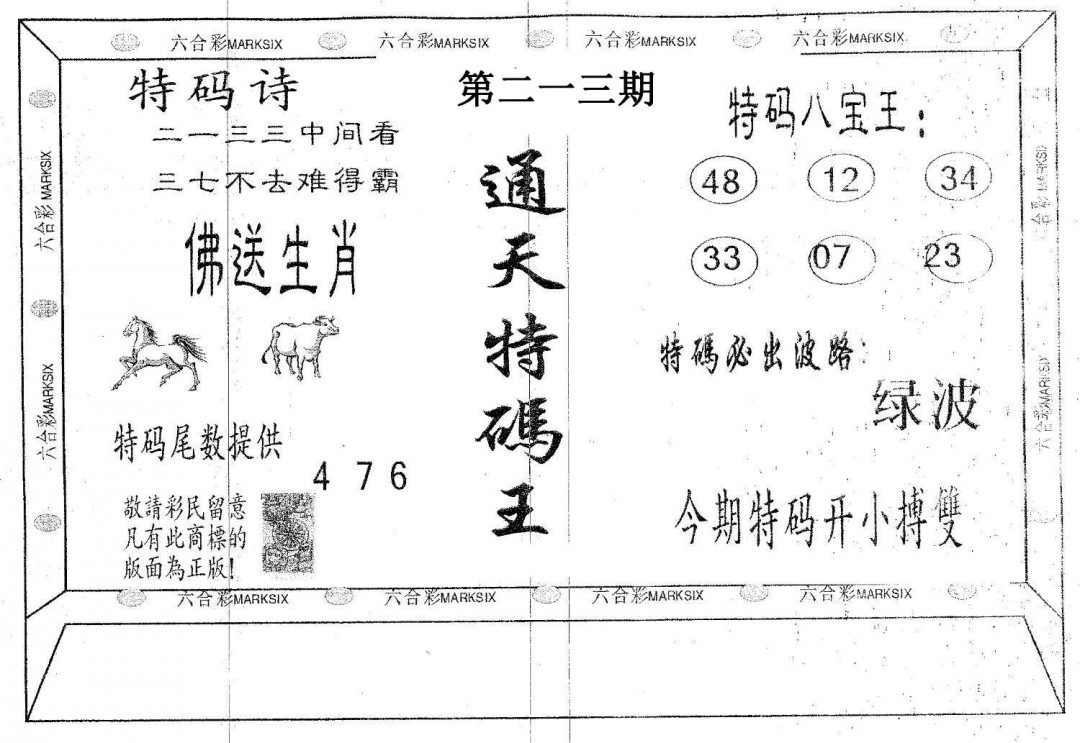 六合彩MARKSIX 六合彩MARKSIX 六合彩MARKSIX 六合彩MARKSIX
六合彩 MARKSIX
六合彩MARKSIX
特码诗
二一三三中间看
三七不去难得霸
佛送生肖
特码尾数提供
4 7 6
敬請彩民留意
凡有此商標的
版面為正版!
第二一三期
通天特碼王
特码八宝王:
48 12 34
33 07 23
特碼必出波路:
绿波
今期特码开小搏雙
六合彩 MARKSIX
六合彩MARKSIX
六合彩MARKSIX 六合彩MARKSIX 六合彩MARKSIX 六合彩MARKSIX